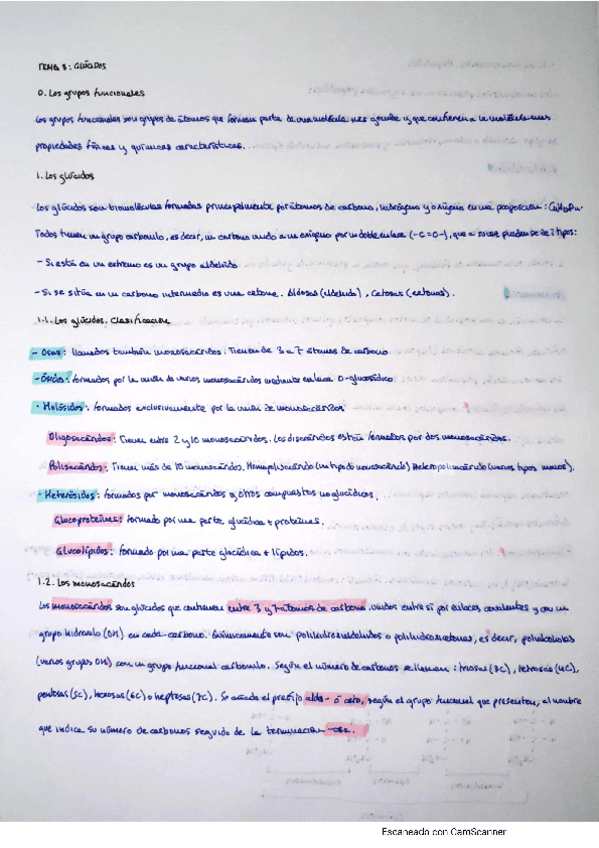 TEMA 3: GLÚCIDOS
0. Los grupos funcionales
Los grupos funcionales son grupos de átomos que forman parte de una molécula más grande y que confieren a la molécula unas
propiedades físicas y químicas características.
1. Los glúcidos
Los glúcidos son biomoléculas formadas principalmente por átomos de carbono, hidrógeno y oxígeno en una proporción: CnH2nOn.
Todos tienen un grupo carbonilo, es decir, un carbono unido a un oxígeno por un doble enlace (-C=O-), que a su vez pueden ser de 2 tipos:
- Si está en un extremo es un grupo aldehído
- Si se sitúa en un carbono intermedio es una cetona. Aldosas (aldehído), Cetosas (cetonas).
1.1. Los glúcidos. Clasificación
- Osas: llamados también monosacáridos. Tienen de 3 a 7 átomos de carbono
- Ósidos: formados por la unión de varios monosacáridos mediante enlace O-glucosídico
· Holósidos: formados exclusivamente por la unión de monosacáridos
Oligosacáridos: Tienen entre 2 y 10 monosacáridos. Los disacáridos están formados por dos monosacáridos.
Polisacáridos: Tienen más de 10 monosacárid. Homopolisacárido (un tipo de monosacárido) Heteropolisacárido (varios tipos monos).
· Heterósidos: formados por monosacáridos y otros compuestos no glucídicos.
Glucoproteínas: formado por una parte glucídica + proteínas.
Glucolípidos: formado por una parte glucídica + lípidos.
1.2. Los monosacáridos
Los monosacáridos son glúcidos que contienen entre 3 y 7 átomos de carbono, unidos entre sí por enlaces covalentes y con un
grupo hidroxilo (OH) en cada carbono. Químicamente son polihidroxialdehídos o polihidroxicetonas, es decir, polialcoholes
(varios grupos OH) con un grupo funcional carbonilo. Según el número de carbonos se llaman: triosas (3C), tetrosas (4C),
pentosas (5C), hexosas (6C) o heptosas (7C). Se añade el prefijo aldo- ó ceto, según el grupo funcional que presenten, al nombre
que indica su número de carbonos seguido de la terminación -osa.
Escaneado con CamScanner